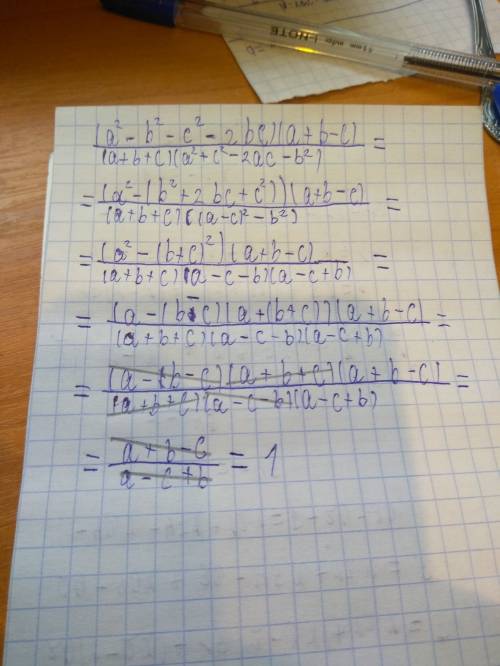 I-NOTE
(a² - b² - c² - 2bc)(a+b-c) / (a+b+c)(a²+c²-2ac-b²) =
= (a²-(b²+2bc+c²))(a+b-c) / (a+b+c)((a-c)²-b²) =
= (a²-(b+c)²)(a+b-c) / (a+b+c)(a-c-b)(a-c+b) =
= (a-(b-c)(a+(b+c))(a+b-c) / (a+b+c)(a-c-b)(a-c+b) =
= (a-b-c)(a+b+c)(a+b-c) / (a+b+c)(a-c-b)(a-c+b) =
= a+b-c / a-c+b = 1